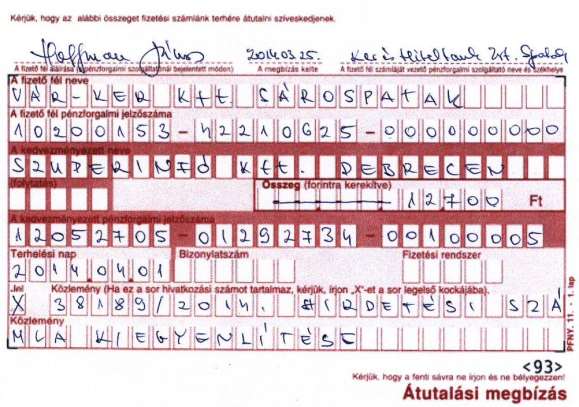 Kérjük, hogy az alábbi összeget fizetési számlánk terhére átutalni szíveskedjenek.
Hoffman János 2014.03.25. Zrt.
A fizető fél aláírása (a pénzforgalmi szolgáltatónál bejelentett módon) A megbízás kelte A fizető fél számláját vezető pénzforgalmi szolgáltató neve és székhelye
A fizető fél neve
VÁR-KER Kft. SÁROSPATAK
A fizető fél pénzforgalmi jelzőszáma
10200153-42210625-00000000
A kedvezményezett neve
SZUPERINFÓ Kft. DEBRECEN
(folytatás) Összeg (forintra kerekítve) 12700 Ft
A kedvezményezett pénzforgalmi jelzőszáma
12052705-01292734-00100005
Terhelési nap Bizonylatszám Fizetési rendszer
20140401
Jel Közlemény (Ha ez a sor hivatkozási számot tartalmaz, kérjük, írjon „X"-et a sor legelső kockájába).
X 38189/2014. HIRDETÉSI SZÁ
Közlemény
MLA KIEGYENLÍTÉSE
PFNY. 11. - 1. lap
<93>
Kérjük, hogy a fenti sávra ne írjon és ne bélyegezzen!
Átutalási megbízás